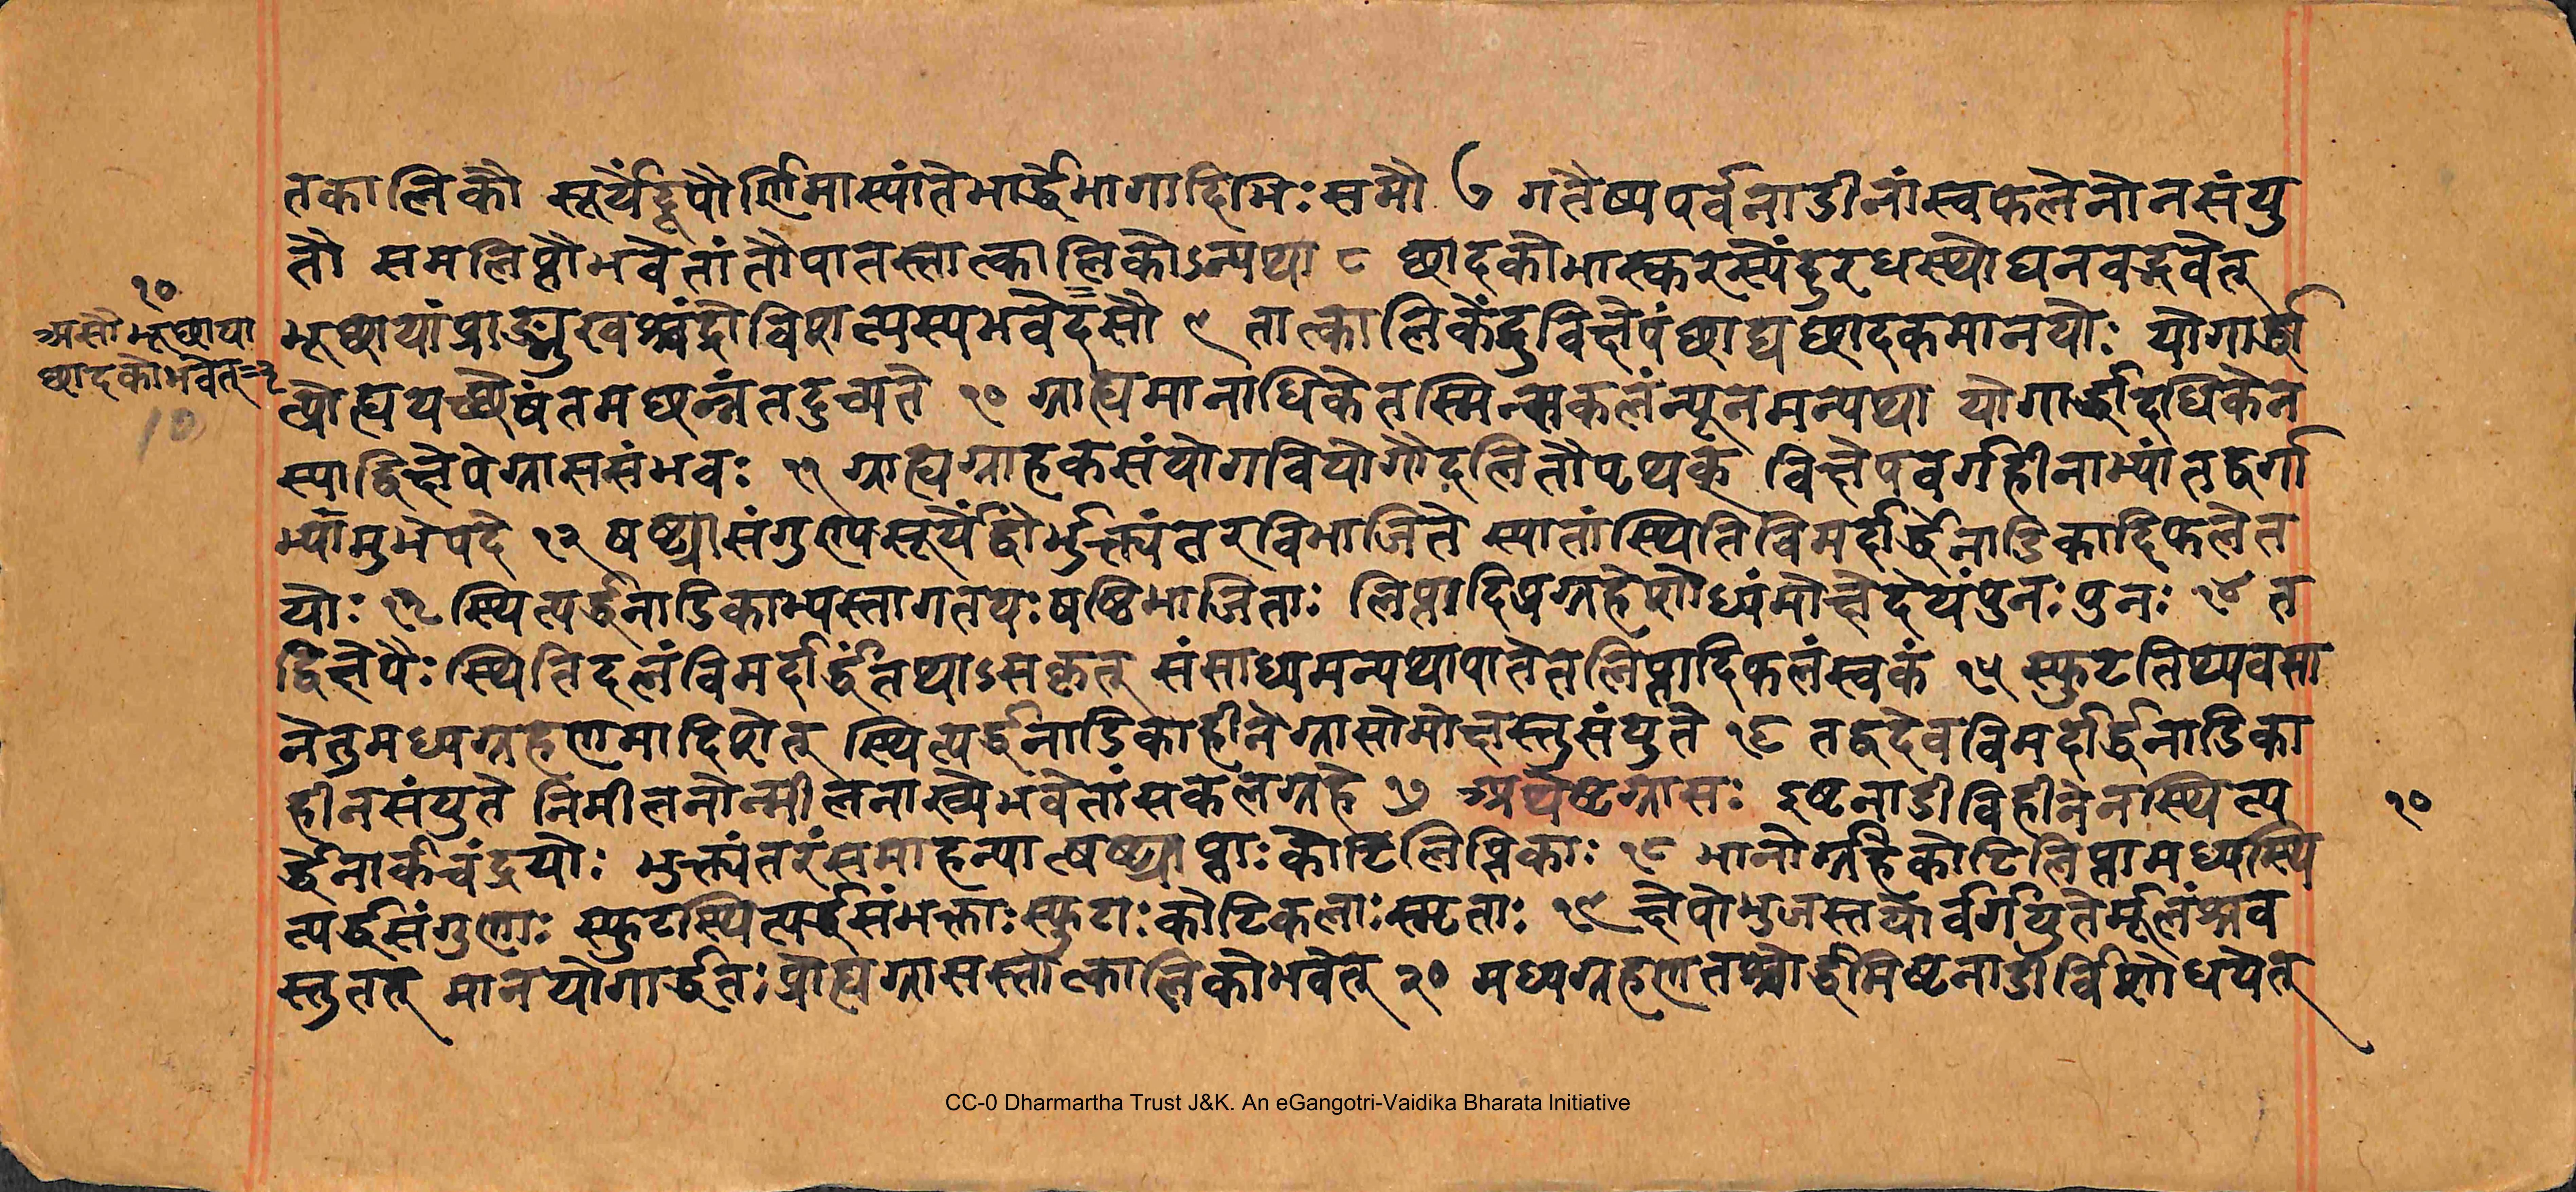 तकालिकौ सूर्येंदू पौर्णिमास्यांते भार्द्धे भागादिभिः समौ ७ गतैष्यपर्वनाडीनां स्वफलेनोनसंयु
तौ समलिप्तौ भवेतां तौ पातस्तात्कालिकोऽन्यथा ८ छादको भास्करस्येंदुरधस्थो घनवद्भवेत्
भूछायां प्राङ्मुखश्चंद्रो विशत्यस्य भवेदसौ ९ तात्कालिकेंदुविक्षेपं छाद्यछादकमानयोः योगार्द्धा
त्प्रोह्य यच्छेषं तमछन्नं तदुच्यते १० ग्राह्यमानाधिके तस्मिन्सकलं न्यूनमन्यथा योगार्द्धादधिके न
स्याद्विक्षेपे ग्राससंभवः ११ ग्राह्यग्राहकसंयोगवियोगौ दलितौ पृथक् विक्षेपवर्गहीनाभ्यां तद्वर्गा
भ्यामुभे पदे १२ षष्ट्या संगुण्य सूर्येंद्वोर्भुक्त्यंतरविभाजिते स्यातां स्थितिविमर्दार्द्धे नाडिकादिफले त
योः १३ स्थित्यर्द्धनाडिकाभ्यस्ता गतयः षष्टिभाजिताः लिप्तादि प्रग्रहे शोध्यं मोक्षे देयं पुनः पुनः १४ त
द्विक्षेपैः स्थितिदलं विमर्दार्द्धं तथाऽसकृत् संसाध्यमन्यथा पाते तल्लिप्तादिफलं स्वकं १५ स्फुटतिथ्यवसा
ने तु मध्यग्रहणमादिशेत् स्थित्यर्द्धनाडिकाहीने ग्रासो मोक्षस्तु संयुते १६ तद्वदेव विमर्दार्द्धनाडिका
हीनसंयुते निमीलनोन्मीलनाख्ये भवेतां सकलग्रहे १७ अथेष्टग्रासः इष्टनाडीविहीनेन स्थित्य
र्द्धेनार्कचंद्रयोः भुक्त्यंतरं समाहन्यात्षष्ट्याप्ताः कोटिलिप्तिकाः १८ भानोर्ग्रहे कोटिलिप्ता मध्यस्थि
त्यर्द्धसंगुणाः स्फुटस्थित्यर्द्धसंभक्ताः स्फुटाः कोटिकलाः स्मृताः १९ क्षेपो भुजस्तयोर्वर्गयुतेर्मूलं श्रव
स्तु तत् मानयोगार्द्धतः प्रोह्य ग्रासस्तात्कालिको भवेत् २० मध्यग्रहणतश्चोर्द्धमिष्टनाडीर्विशोधयेत्
१०
असौ भूछाया
छादको भवेत् = ३
10
१०
CC-0 Dharmartha Trust J&K. An eGangotri-Vaidika Bharata Initiative